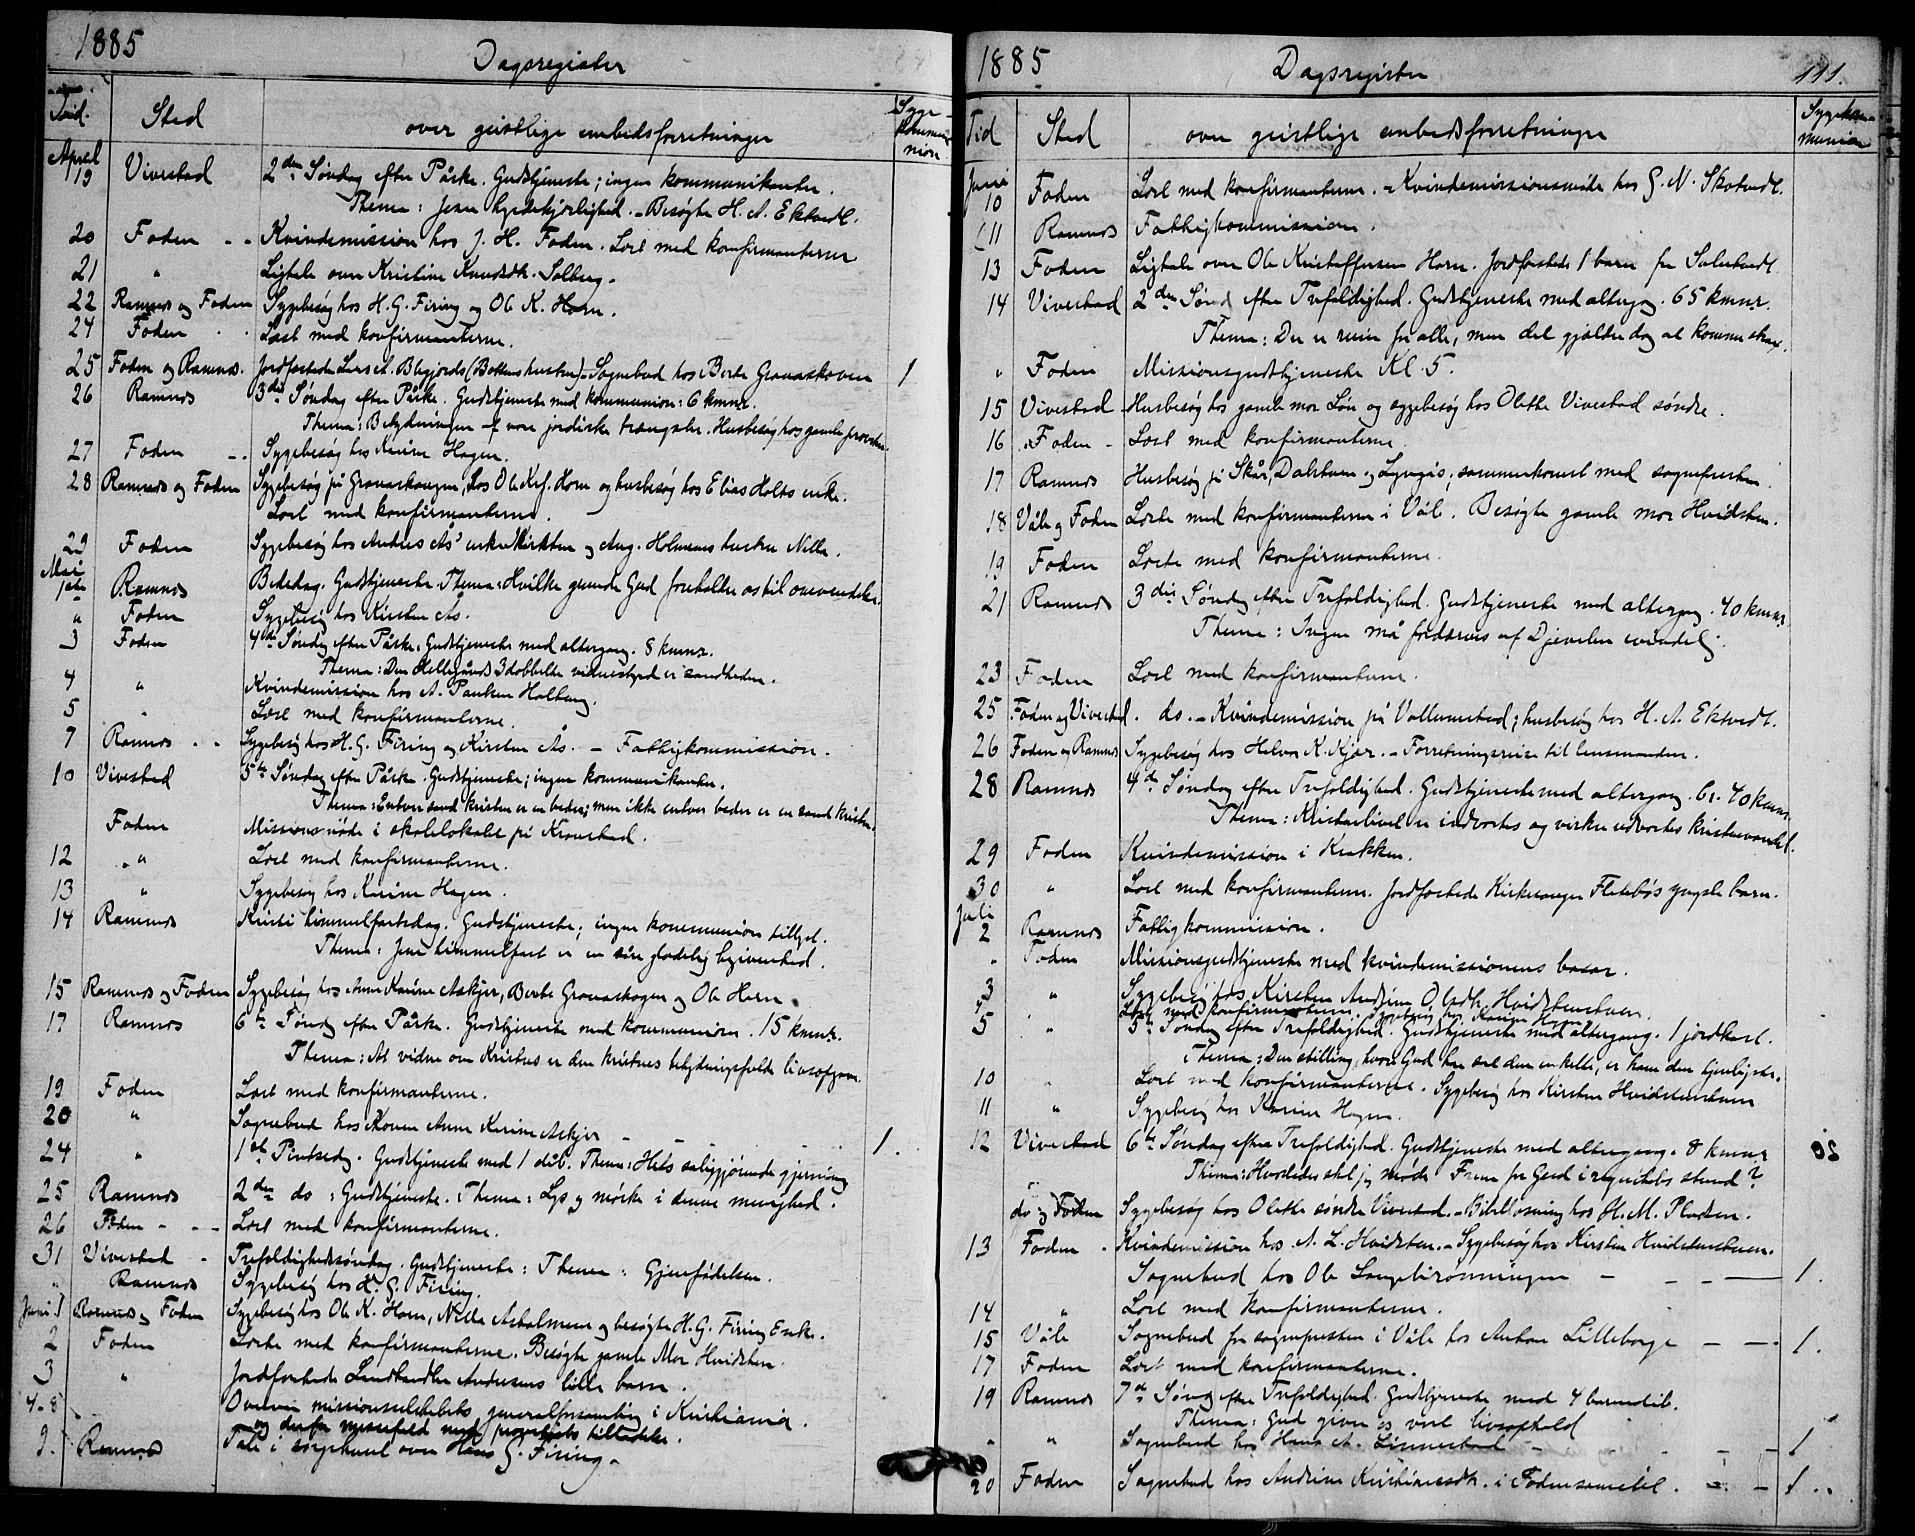 1885
Dagsregister
Tid.
Sted
over geistlige embedsforretninger
Sygekommunion
April
19 Vivestad 2den Søndag efter Påske. Gudstjeneste; ingen kommunikanter.
Thema: Jesu hyrdekjærlighed. - Besøgte H. A. Ektvedt.
20 Foden - - Kvindemission hos J. H. Foden. Læst med konfirmanterne
21 " Ligtale over Kristine Knudsdtr. Solberg.
22 Ramnæs og Foden Sygebesøg hos H. G. Firing og Ole K. Horn.
24 Foden Læst med konfirmanterne.
25 Foden og Ramnæs. Jordfæstede Lars A. (Bakkens hustru) - Sognebud hos Berte Gravaskoven 1
26 Ramnæs 3die Søndag efter Påske. Gudstjeneste med kommunion: 6 kmnr.
Thema: Betydningen af vore jordiske trængsler. Husbesøg hos gamle
27 Foden - Sygebesøg hos Karine Hagen.
28 Ramnæs og Foden Sygebesøg på Gravaskougen, hos Ole Krf. Horn og husbesøg hos Elias Holts enke.
Læst med konfirmanterne.
29 Foden Sygebesøg hos Anders Ås' enke Kirsten og Aug. Holmens hustru Nille.
Mai
1ste Ramnæs Bededag. Gudstjeneste. Thema: Hvilke grunde Gud foreholder os til omvendelse.
" Foden Sygebesøg hos Kirsten Ås.
3 Foden 4de Søndag efter Påske. Gudstjeneste med altergang. 8 kmnr.
Thema: Den Helligånds 3dobbelte vidnesbyrd er sandheden.
4 " Kvindemission hos A. Paulsen Holtung.
5 " Læst med konfirmanterne.
7 Ramnæs - - Sygebesøg hos H. G. Firing og Kirsten Ås. - Fattigkommission.
10 Vivestad 5te Søndag efter Påske. Gudstjeneste; ingen kommunikanter.
Thema: Enhver sand kristen er en beder; men ikke enhver beder er en sand kristen.
Foden Missionsmøde i skolelokalet på Kravstad.
12 " Læst med konfirmanterne.
13 " Sygebesøg hos Karine Hagen.
14 Ramnæs Kristi himmelfartsdag. Gudstjeneste; ingen kommunion tillyst.
Thema: Jesu himmelfart er en såre glædelig begivenhed.
15 Ramnæs og Foden Sygebesøg hos Anne Karine Askjer, Berte Gravaskogen og Ole Horn.
17 Ramnæs 6te Søndag efter Påske. Gudstjeneste med kommunion. 15 kmnr.
Thema: At vidne om Kristus er den kristnes betydningsfulde livsopgave.
19 Foden Læst med konfirmanterne.
20 " Sognebud hos Konen Anne Karine Askjer - - - 1.
24 " 1ste Pintsedag. Gudstjeneste med 1 dåb. Thema: saliggjørende gjerning
25 Ramnæs 2den do: Gudstjeneste. Thema: Lys og mørke i denne menighed.
26 Foden - - - Læst med konfirmanterne.
31 Vivestad - Trefoldighedsøndag. Gudstjeneste: Thema: Gjenfødelsen.
" Ramnæs Sygebesøg hos H. G. Firing.
Juni 1 Ramnæs og Foden Sygebesøg hos Ole K. Horn, Nille Asholmen og besøgte H. G. Firing Enke.
2 Foden Læste med konfirmanterne. Besøgte gamle Mor Hvidsten.
3 " Jordfæstede Landhandler Andersens lille barn.
4-8 Overvar missionsselskabets generalforsamling i Kristiania.
og derfra med provstens tilladelse.
9. Ramnæs Tale i sørgehuset over Hans G. Firing.
1885
Dagsregister
111.
Tid
Sted
over geistlige embedsforretninger
Sygekommunion
Juni
10 Foden Læst med konfirmanterne. - Kvindemissionsmøde hos G. N. Skotvedt.
11 Ramnæs Fattigkommission.
13 Foden Ligtale over Ole Kristoffersen Horn. Jordfæstede 1 barn fra
14 Vivestad 2den Sønd efter Trefoldighed. Gudstjeneste med altergang. 65 kmnr.
Thema: Der er rum for alle, men det gjælder dog at komme strax.
" Foden Missionsgudstjeneste Kl. 5.
15 Vivestad Husbesøg hos gamle mor Løn og sygebesøg hos Olethe Vivestad søndre.
16 Foden - Læst med konfirmanterne.
17 Ramnæs Husbesøg på Skår, Dalstuen og; sammenkomst med sognepresten.
18 Våle og Foden Læste med konfirmanterne i Våle. Besøgte gamle mor Hvidsten.
19 Foden Læste med konfirmanterne.
21 Ramnæs 3die Søndag efter Trefoldighed. Gudstjeneste med altergang. 40 kmnr.
Thema: Ingen må fordærves af Djevelen uvindelig.
23 Foden Læst med konfirmanterne.
25 Foden og Vivestad. do. - Kvindemission på Vollumstad; husbesøg hos H. A. Ektvedt.
26 Foden og Ramnæs Sygebesøg hos Helvor K. Kjær. - Forretningsreise til lensmanden.
28 Ramnæs 4de Søndag efter Trefoldighed. Gudstjeneste med altergang. 40 kmnr.
Thema: Kristenlivet er indvortes og virker udvortes kristenvandel.
29 Foden Kvindemission i Krakken.
30 " Læst med konfirmanterne. Jordfæstede Kirkesanger Flatebøs yngste barn.
Juli
2 Ramnæs Fattigkommission.
" Foden Missionsgudstjeneste med kvindemissionens basar.
3 " Sygebesøg hos Kirsten Andrine Olsdtr. Hvidstenstuen.
4 Læst med konfirmanterne. Sygebesøg hos Karine Hagen.
5 " 5te Søndag efter Trefoldighed. Gudstjeneste med altergang. 1 jordkast.
Thema: Den stilling, hvori Gud har sat den enkelte, er ham den tjenligste.
10 " Læst med konfirmanterne. Sygebesøg hos Kirsten Hvidstenstuen
11 " Sygebesøg hos Karine Hagen.
12 Vivestad 6te Søndag efter Trefoldighed. Gudstjeneste med altergang. 8 kmnr
Thema: Hvorledes skal jeg møde Frem for Gud i regnskabets stund?
do og Foden Sygebesøg hos Olethe søndre Vivestad. - Bibellæsning hos H. M. Pladsen.
13 Foden - Kvindemission hos A. L. Hvidsten. - Sygebesøg hos Kirsten Hvidstenstuen.
Sognebud hos Ole Langebrønningen - - - 1.
14 " Læst med konfirmanterne.
15 Våle Sognebud for sognepresten i Våle hos Anton Lilleborge - - 1.
17 Foden Læst med konfirmanterne.
19 Ramnæs 7de Sønd efter Trefoldighed. Gudstjeneste med 4 barnedåb.
Thema: Gud giver os vort livsophold
" " Sognebud hos Hans A. Linnestad - - - - 1
20 Foden Sognebud hos Andrine Kristiansdtr. i Foden - - 1